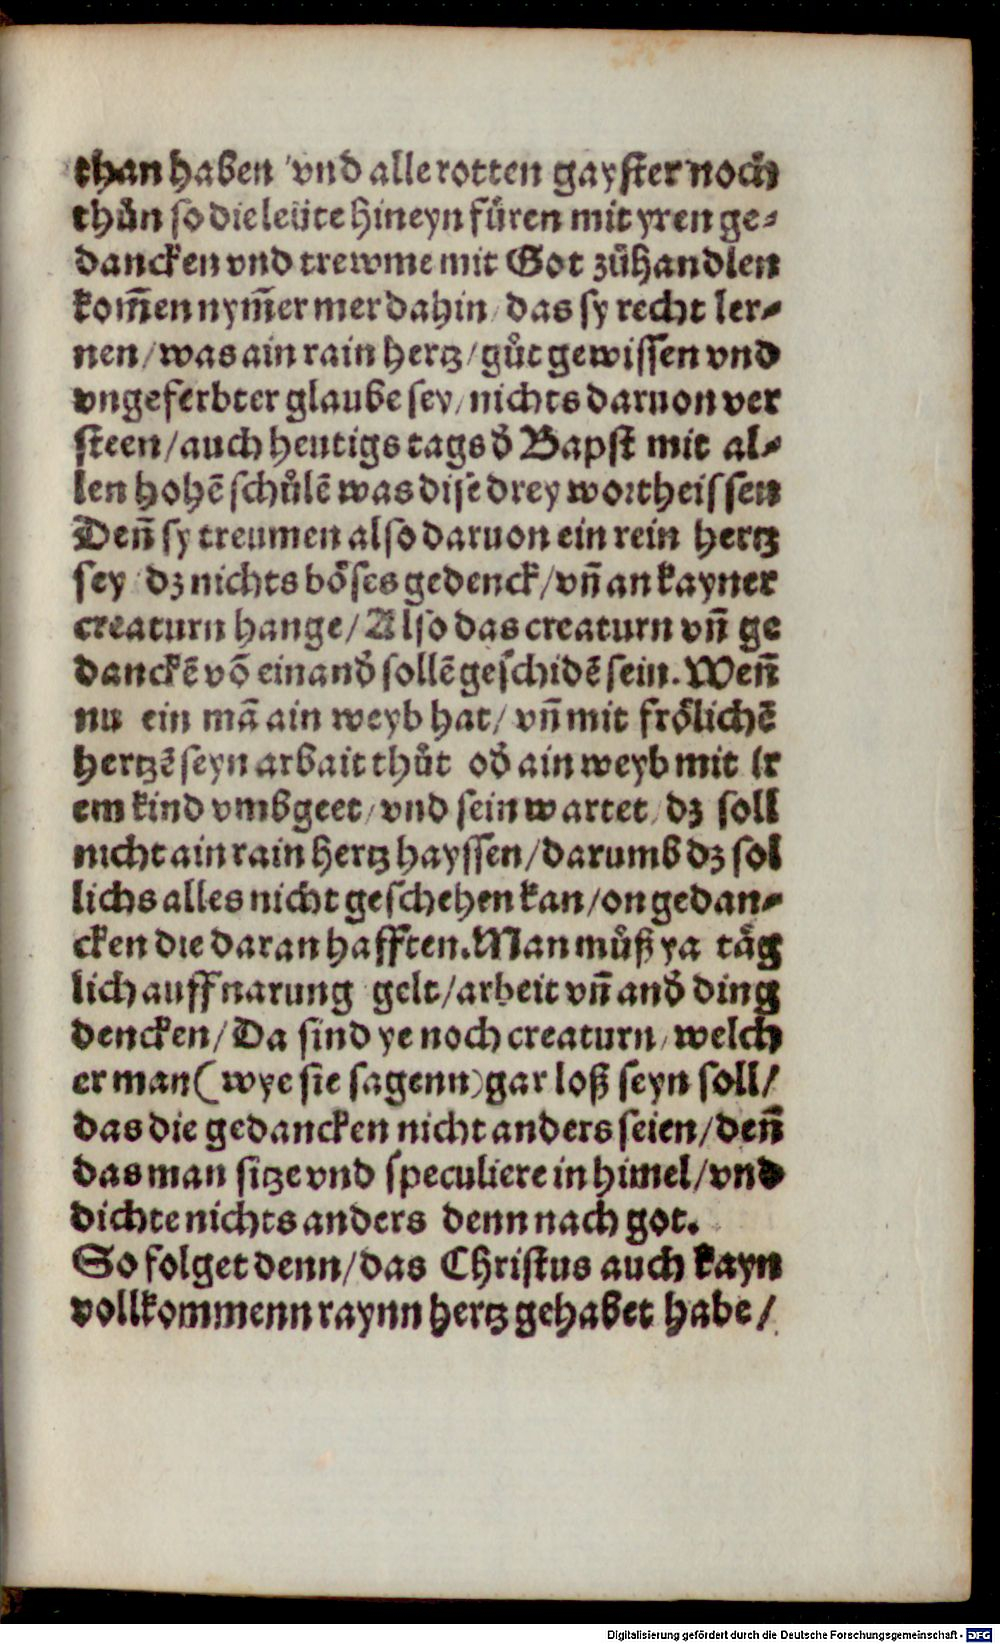 than haben / vnd alle rotten gayster noch
thůn so die leüte hineyn fůren mit yren ge⸗
dancken vnd trewme mit Got zůhandlen
kom̃en nym̃er mer dahin / das sy recht ler⸗
nen / was ain rain hertz / gůt gewissen vnd
vngeferbter glaube sey / nichts daruon ver
steen / auch heutigs tags d̓ Bapst mit al⸗
len hohē schůlē was dise drey wort heissen
Deñ sy treumen also daruon ein rein hertz
sey / dz nichts böses gedenck / vñ an kayner
creaturn hange / Also das creaturn vñ ge
danckē võ einand̓ sollē geschidē sein. Weñ
nu ein mã ain weyb hat / vñ mit frölichē
hertzē seyn arbait thůt od̓ ain weyb mit ir
em kind vmbgeet / vnd sein wartet / dz soll
nicht ain rain hertz hayssen / darumb dz sol
lichs alles nicht geschehen kan / on gedan⸗
cken die daran hafften. Man můß ya täg
lich auff narung gelt / arbeit vñ and̓ ding
dencken / Da sind ye noch creaturn / welch
er man (wye sie sagenn) gar loß seyn soll /
das die gedancken nicht anders seien / deñ
das man sitze vnd speculiere in himel / vnd
dichte nichts anders denn nach got.
So folget denn / das Christus auch kayn
vollkommenn raynn hertz gehabet habe /
Digitalisierung gefördert durch die Deutsche Forschungsgemeinschaft - DFG